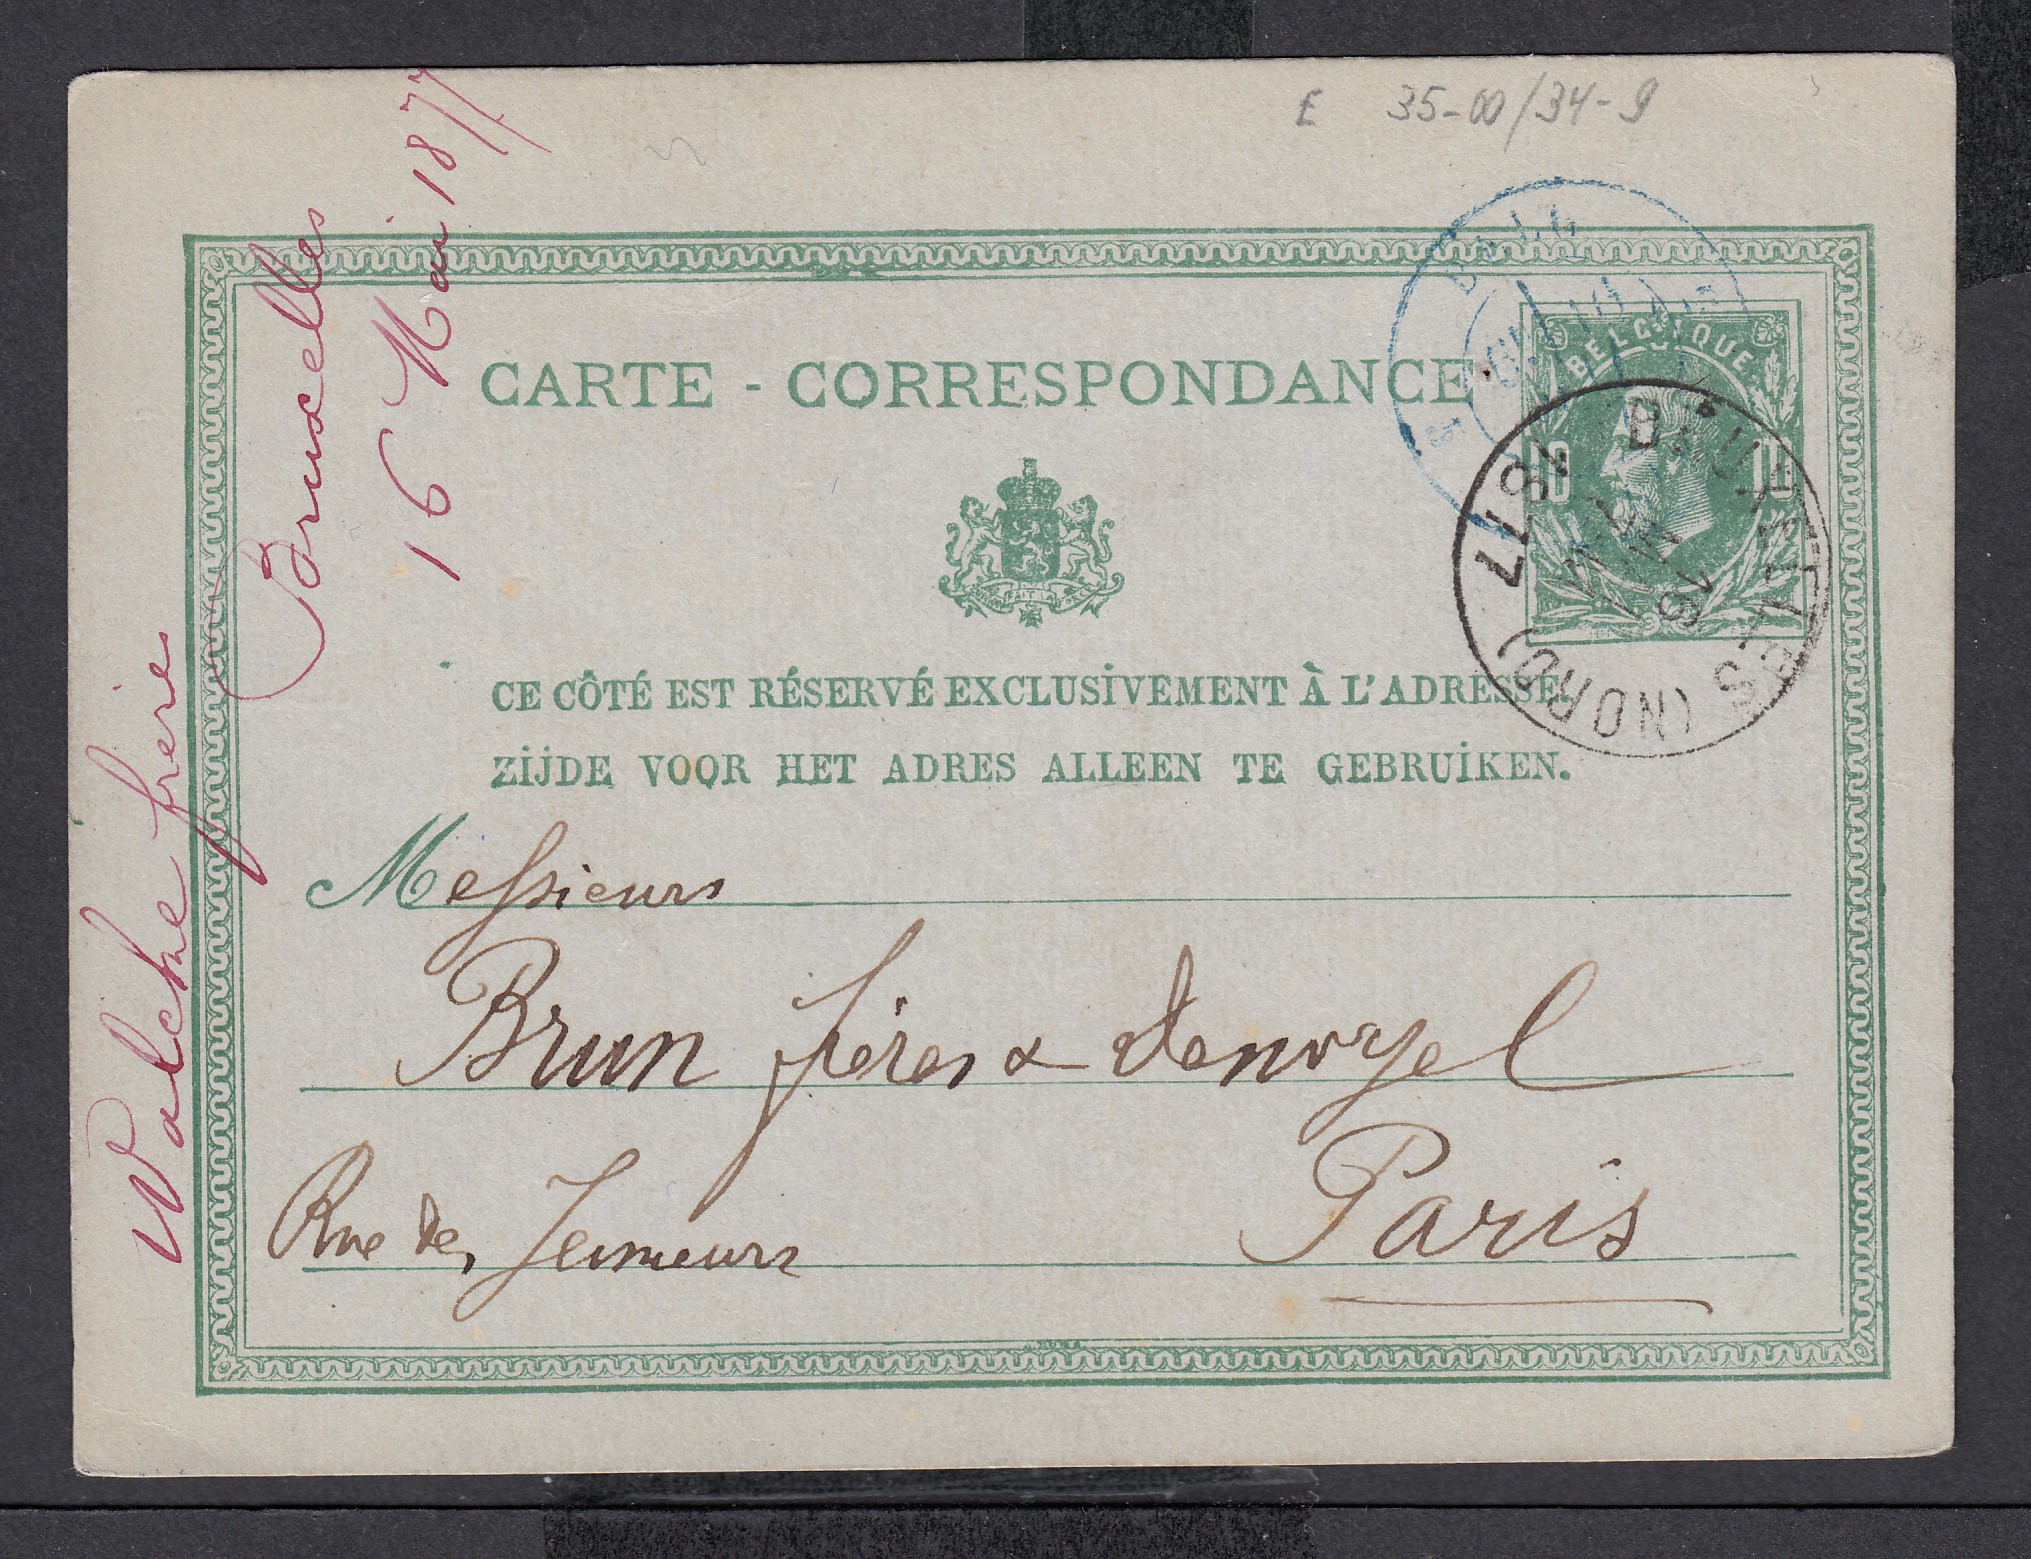 E 35-00/34-9
Bruxelles
16 Mai 1877
Walche frère
CARTE - CORRESPONDANCE
BELGIQUE
10 10
BRUXELLES (NORD)
16 MAI
1877
FAIT LA FORCE
CE CÔTÉ EST RÉSERVÉ EXCLUSIVEMENT À L'ADRESSE.
ZIJDE VOOR HET ADRES ALLEEN TE GEBRUIKEN.
Messieurs
Brun frères &
Rue des Jeuneurs Paris